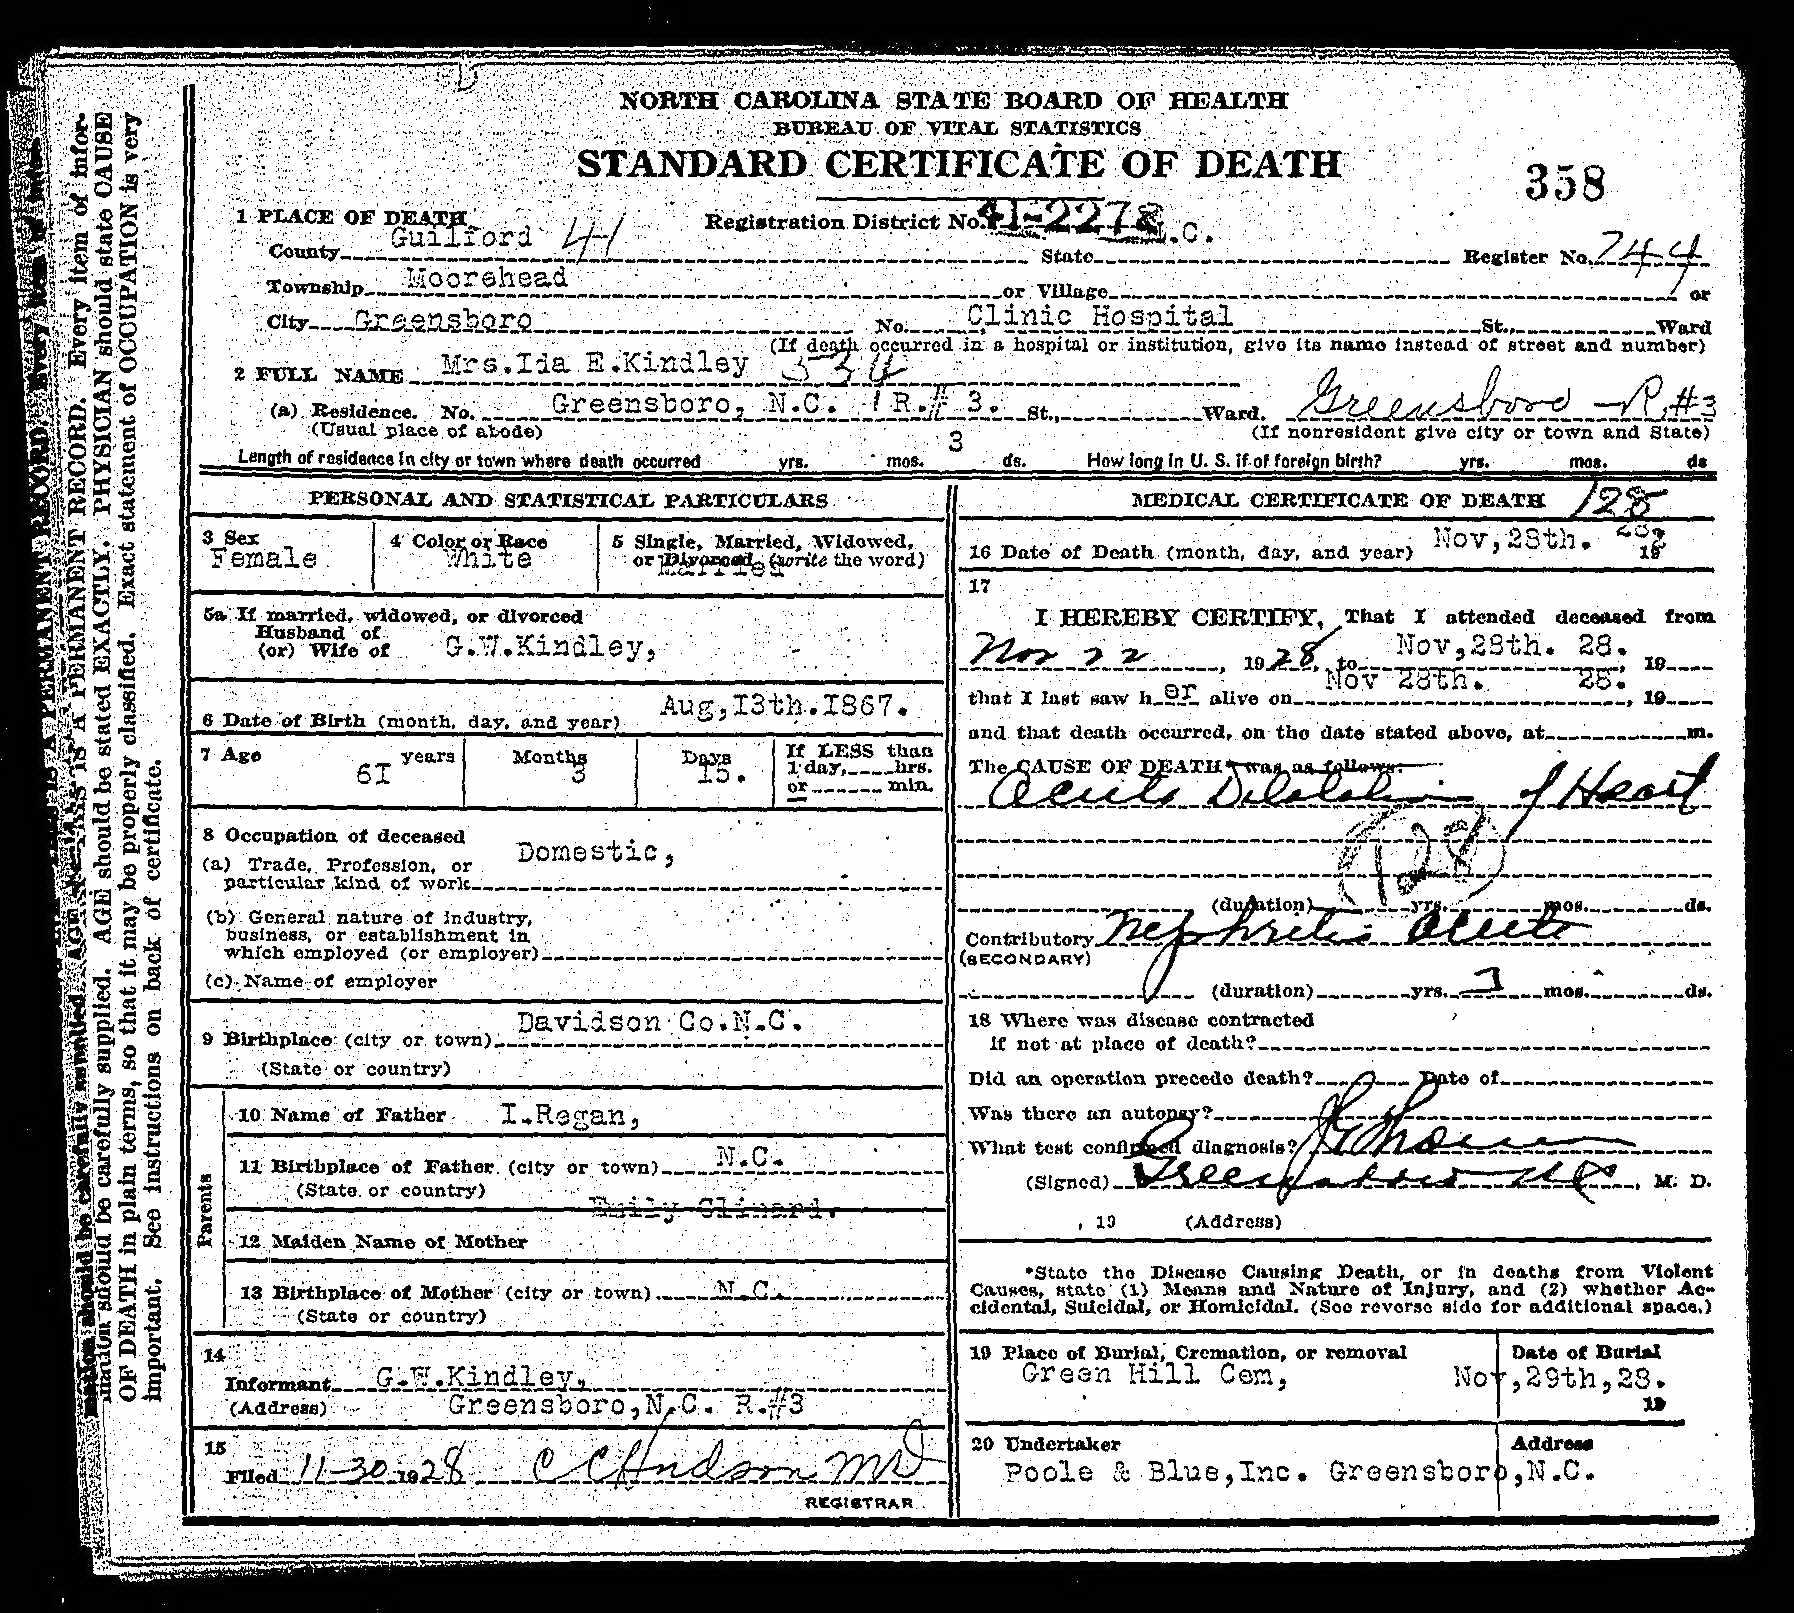 NORTH CAROLINA STATE BOARD OF HEALTH
BUREAU OF VITAL STATISTICS
STANDARD CERTIFICATE OF DEATH
358
1 PLACE OF DEATH
Registration District No. 41-2278
County Guilford 41 State N.C. Register No. 744
Township Moorehead or Village or
City Greensboro No. Clinic Hospital St., Ward
(If death occurred in a hospital or institution, give its name instead of street and number)
2 FULL NAME Mrs.Ida E.Kindley 534
(a) Residence. No. Greensboro, N.C. R.# 3. St., Ward. Greensboro R.#3
(Usual place of abode) (If nonresident give city or town and State)
Length of residence in city or town where death occurred yrs. mos. 3 ds. How long in U. S. if of foreign birth? yrs. mos. ds
PERSONAL AND STATISTICAL PARTICULARS
3 Sex
Female
4 Color or Race
White
5 Single, Married, Widowed,
or Divorced (write the word)
Married
5a If married, widowed, or divorced
Husband of
(or) Wife of G.W.Kindley,
6 Date of Birth (month, day, and year) Aug,I3th.I867.
7 Age years Months Days
6I 3 15.
If LESS than
1 day, hrs.
or min.
8 Occupation of deceased
(a) Trade, Profession, or
particular kind of work Domestic,
(b) General nature of industry,
business, or establishment in
which employed (or employer)
(c) Name of employer
9 Birthplace (city or town) Davidson Co.N.C.
(State or country)
Parents
10 Name of Father I.Regan,
11 Birthplace of Father (city or town) N.C.
(State or country)
Emily Clinard.
12 Maiden Name of Mother
13 Birthplace of Mother (city or town) N.C.
(State or country)
14
Informant G.W.Kindley,
(Address) Greensboro,N.C. R.#3
15
Filed 11-30 1928 C C Hudson MD
REGISTRAR
MEDICAL CERTIFICATE OF DEATH 128
16 Date of Death (month, day, and year) Nov,28th. 28, 19
17
I HEREBY CERTIFY, That I attended deceased from
Nov 22, 1928, to Nov,28th. 28., 19
that I last saw her alive on Nov 28th. 28., 19
and that death occurred, on the date stated above, at m.
The CAUSE OF DEATH* was as follows:
Acute Dilatation of Heart
128
(duration) yrs. mos. ds.
Contributory Nephritis Acute
(SECONDARY)
(duration) yrs. mos. ds.
18 Where was disease contracted
if not at place of death?
Did an operation precede death? Date of
Was there an autopsy?
What test confirmed diagnosis?
(Signed) Greensboro NC, M. D.
, 19 (Address)
*State the Disease Causing Death, or in deaths from Violent
Causes, state (1) Means and Nature of Injury, and (2) whether Ac-
cidental, Suicidal, or Homicidal. (See reverse side for additional space.)
19 Place of Burial, Cremation, or removal
Green Hill Cem,
Date of Burial
Nov,29th,28.
19
20 Undertaker Address
Poole & Blue,Inc. Greensboro,N.C.
mation should be carefully supplied. AGE should be stated EXACTLY. PHYSICIAN should state CAUSE
OF DEATH in plain terms, so that it may be properly classified. Exact statement of OCCUPATION is very
important. See instructions on back of certificate.